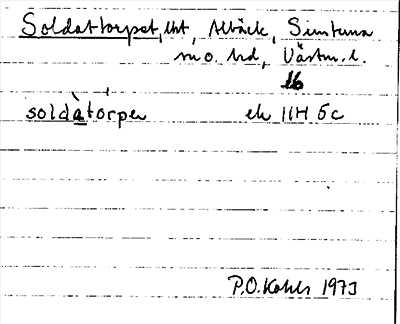 Soldattorpet, lht, Albäck, Simtuna
sn o. hd, Västm. l.
16
soldàtórpe ek 11H 5c
P.O. Kohls 1973